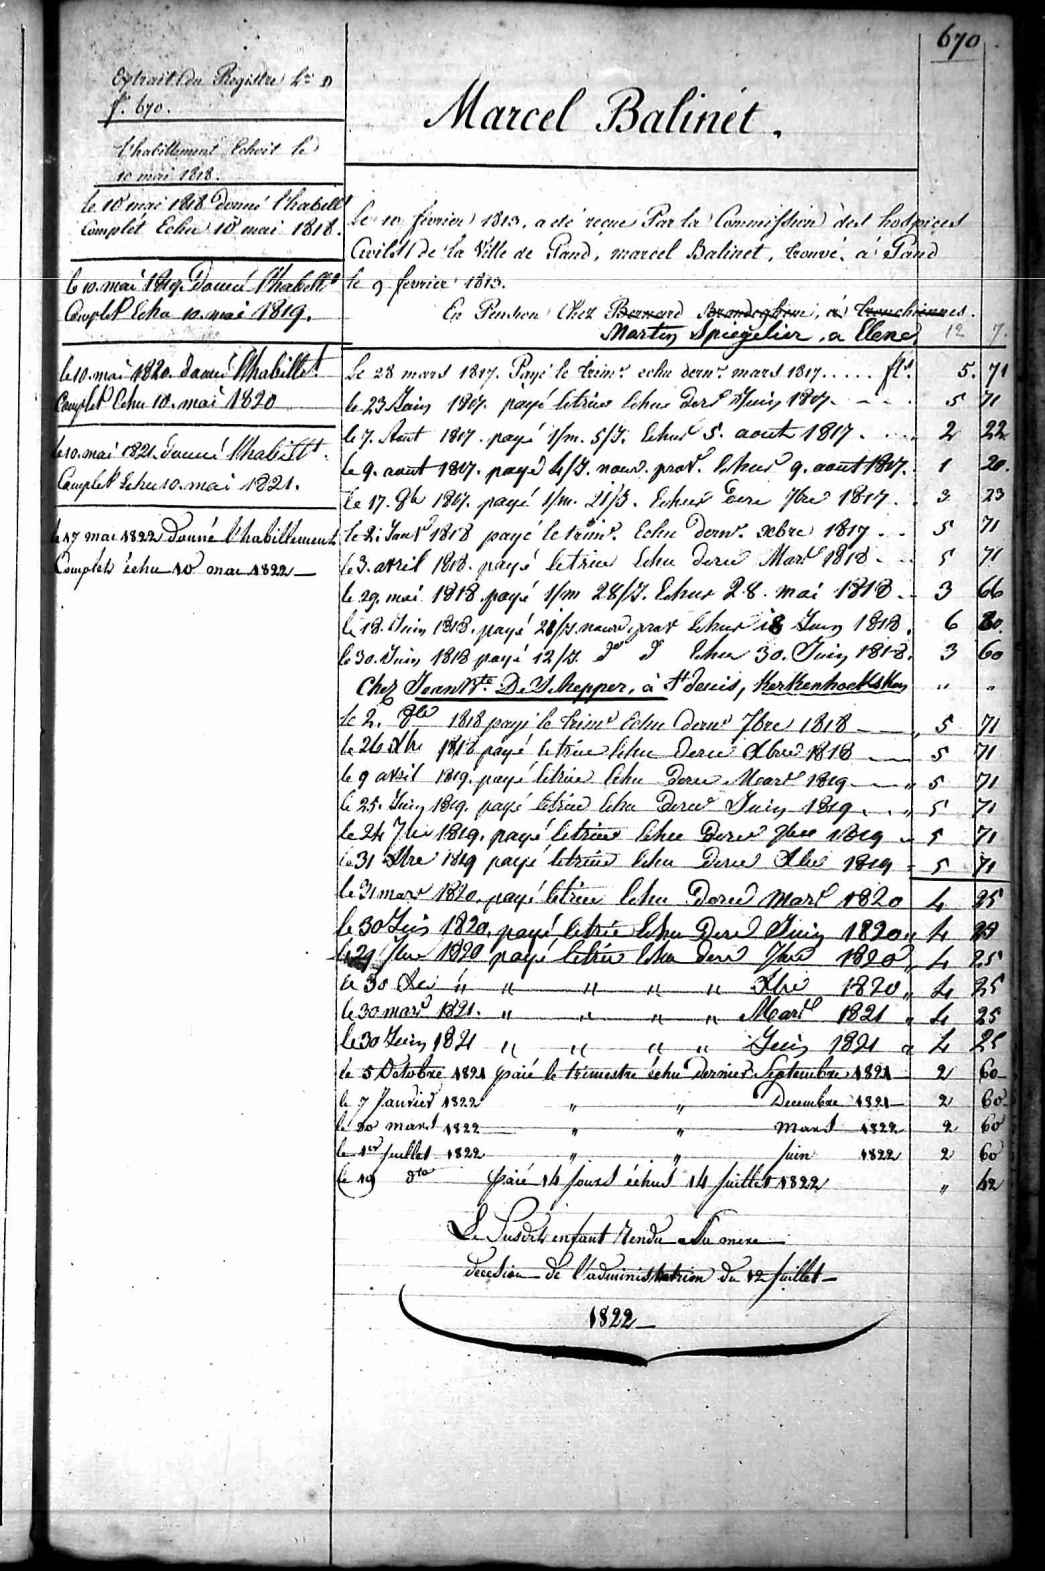 670
Extrait du Registre Lre D
f°. 670.
l'habillement Echoit le
10 mai 1818.
le 10 mai 1818 donné l'habillt
complét Echu 10 mai 1818.
le 10. mai 1819. Donné l'habillt
Complet Echu 10. mai 1819.
le 10. mai 1820. donné l'habillt
Complet Echu 10. mai 1820
le 10. mai 1821. donné l'habillt.
Complét Echu 10. mai 1821.
le 17 mai 1822 Donné l'habillement
Complét échu 10 mai 1822
Marcel Balinét.
Le 10 février 1813. a été recue Par la Commission des hospices
Civils de la Ville de Gand, marcel Balinét, trouvé, á Gand
le 9 fevrier 1813.
En Pension Chez Bernard , á Tronchiennes.
Martin Spiegelier, a Elene, 12 7
Le 28 mars 1817. Payé le trimr. echu dernr. mars 1817. fls. 5. 71
le 23 Juin 1817. payé letrim Echu derr Juin 1817. 5 71
le 7. Aout 1817. payé 1/m. 5/J. Echus 5. aout 1817. 2 22
le 9. aout 1817. payé 4/J. nour. prov. Echus 9. aout 1817. 1 20.
le 17. 8b 1817. payé 1/m. 21/J. Echus 7bre 1817. 3 23
le 2. Janr 1818 payé le trimr. Echu dernr. xbre 1817 5 71
le 3. avril 1818. payé letrim Echu Mars 1818 5 71
le 29. mai 1818 payé 1/m 28/J. Echus 28. mai 1818 3 66
le 18. Juin 1818. payé 21/J. nour. prov Echus 18 Juin 1818. 6 30.
le 30. Juin 1818 payé 12/J. do do Echu 30. Juin 1818. 3 60
Chez Jean Bte. De Schepper, à St. Denis, " "
le 2. 8bre 1818 payé le trimr Echu dernr 7bre 1818 5 71
le 26 Xbre 1818 payé letrim Echu Xbre 1818 5 71
le 9 avril 1819. payé letrim Echu Mars 1819 " 5 71
le 25 Juin 1819. payé letrim Echu Juin 1819 " 5 71
le 24 7bre 1819. payé letrim Echu 7bre 1819 5 71
le 31 Xbre 1819 payé letrim Echu Xbre 1819 5 71
le 31 mars 1820. payé letrim Echu mars 1820 4 25
le 30 Juin 1820. payé letrim Echu Juin 1820 " 4 25
le 29 7bre 1820 payé letrim Echu 7bre 1820 " 4 25
le 30 Xbre " " " " " Xbre 1820 " 4 25
le 30 mars 1821. " " " " Mars 1821 " 4 25
le 30 Juin 1821 " " " " Juin 1821 " 4 25
le 5 Octobre 1821 paié le trimestre échu dernier Septembre 1821 2 60
le 7 Janvier 1822 " " Decembre 1821 2 60
le 20 mars 1822 " " mars 1822 2 60
le 1er Juillet 1822 " " juin 1822 2 60
le 19 dto paié 14 jours échus 14 Juillet 1822 " 42
Le Susdit enfant rendu a Sa mere
decision de l'administration du 12 Juillet
1822